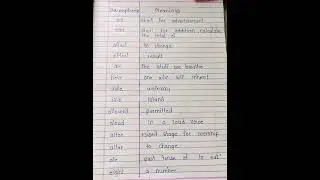 Homophones Meaning
ad short for advertisement
add short for addition, calculate
the total of
affect to change
effect result
air the stuff we breathe
heir one who will inherit
aisle walkway
isle island
allowed permitted
aloud in a loud voice
altar raised stage for worship
alter to change
ate past tense of to eat
eight a number